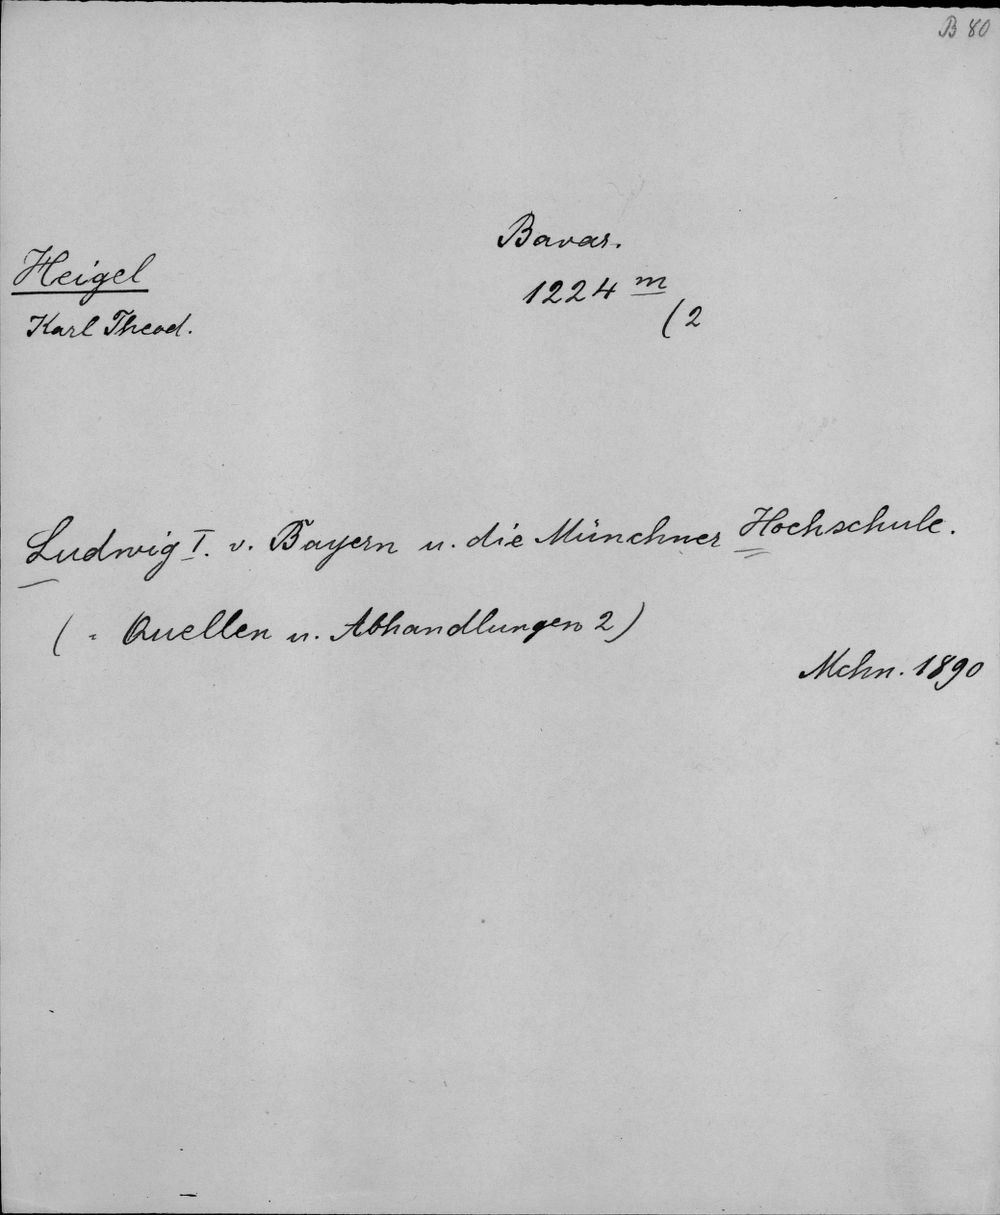 B 80
Bavar.
Heigel
1224 m
(2
Karl Theod.
Ludwig I. v. Bayern u. die Münchner Hochschule.
(= Quellen u. Abhandlungen 2)
Mchn. 1890